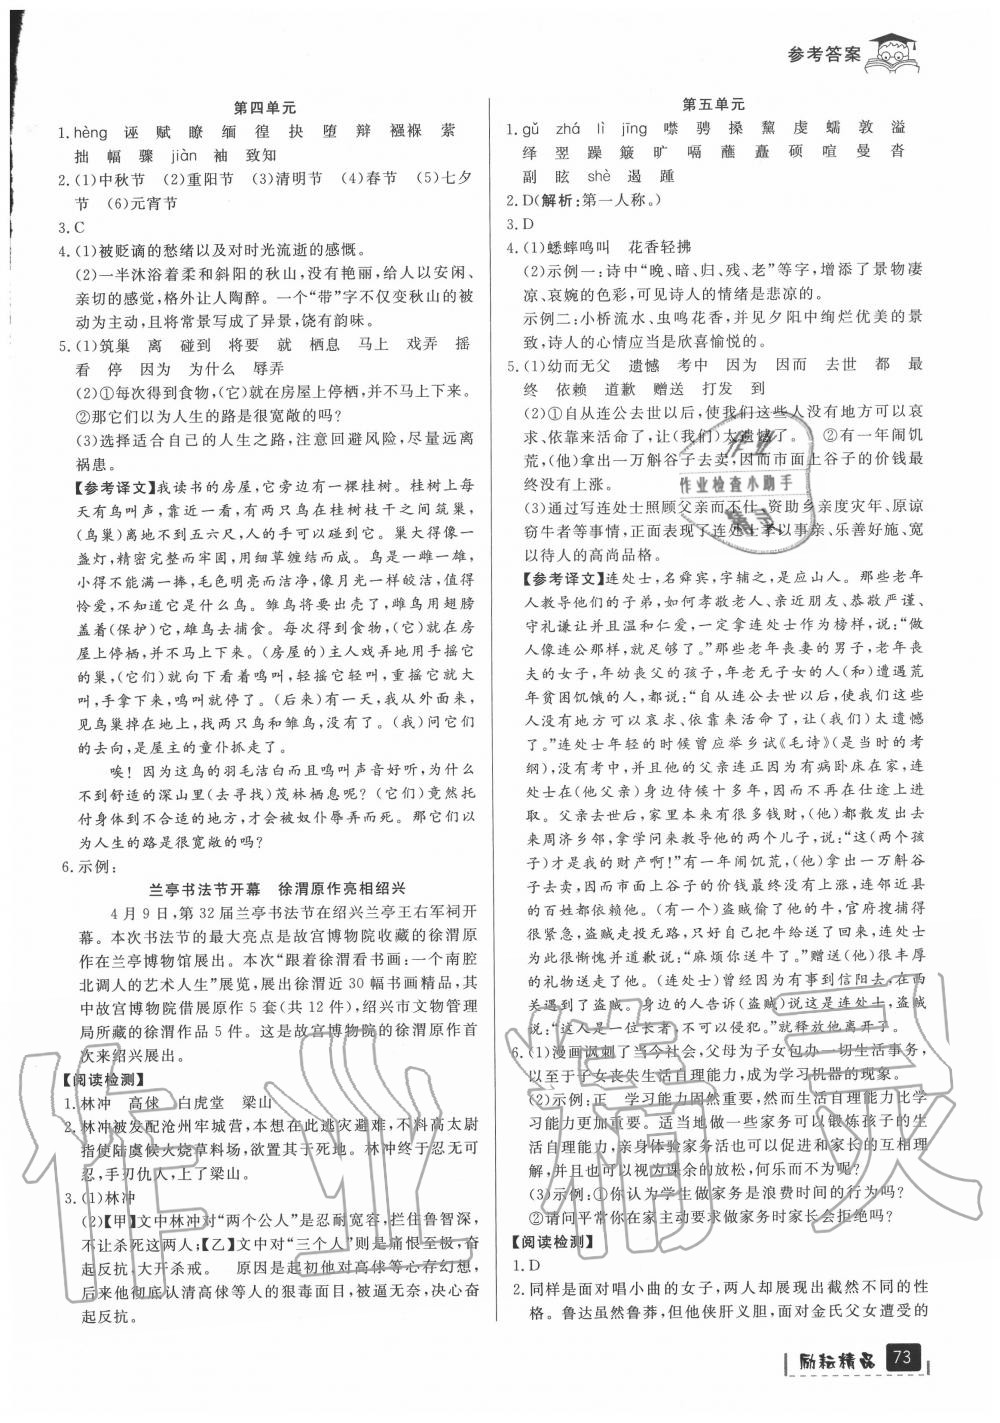 参考答案
第四单元
1.hèng 诬 赋 瞭 缅 徨 抉 堕 辩 襁褓 萦
拙 幅 骤 jiàn 袖 致知
2.(1)中秋节 (2)重阳节 (3)清明节 (4)春节 (5)七夕
节 (6)元宵节
3.C
4.(1)被贬谪的愁绪以及对时光流逝的感慨。
(2)一半沐浴着柔和斜阳的秋山,没有寒意,给人以安闲、
亲切的感觉,格外让人陶醉。一个“带”字不仅变秋山的被
动为主动,且将常景写成了异景,饶有韵味。
5.(1)筑巢 离 碰到 将要 就 栖息 马上 戏弄 摇
看 停 因为 为什么 辱弄
(2)①每次得到食物,(它)就在房屋上停栖,并不离开。
②那它们以为人生的路是很宽敞的吗?
(3)选择适合自己的人生之路,注意回避风险,尽量远离
祸患。
【参考译文】我读书的房屋,它旁边有一棵桂树。桂树上每
天有鸟叫声,靠近一看,有两只鸟在桂树枝干之间筑巢,
(鸟巢)离地不到五六尺,人的手能碰到它。巢大得像一
盏灯,精密完整而牢固,用细草缠结而成。鸟是一雌一雄,
小得不能盖满一捧,毛色明丽而洁净,像月光一样皎洁,值得
怜爱,不知道它是什么鸟。雏鸟将要出来了,雌鸟用翅膀
盖着(保护)它,雄鸟去捕食。每次得到食物,(它)就在房
屋上停栖,并不离开。(房屋的)主人戏弄地用手摇它
的巢,(它们)就向下看着鸣叫,轻摇它轻叫,重摇它就大
叫,手拿下来,鸣叫就停了。(后来)有一天,我从外面来,
见鸟巢掉在地上,找两只鸟和雏鸟,没有了。(我)问它们
的去向,是屋主的童仆抓走了。
唉!因为这鸟的羽毛洁白而且鸣叫声音好听,为什么
不到舒适的深山里(去寻找)茂林栖息呢?(它们)竟然托
付身体到不合适的地方,才会被奴仆辱弄而死。那它们以
为人生的路是很宽敞的吗?
6.示例:
兰亭书法节开幕 徐渭原作亮相绍兴
4月9日,第32届兰亭书法节在绍兴兰亭王右军祠开
幕。本次书法节的最大亮点是故宫博物院收藏的徐渭原
作在兰亭博物馆展出。本次“跟着徐渭看书画:一个南腔
北调人的艺术人生”展览,展出徐渭近30幅书画精品,其
中故宫博物院借展原作5套(共12件),绍兴市文物管理
局所藏的徐渭作品5件。这是故宫博物院的徐渭原作首
次来绍兴展出。
【阅读检测】
1.林冲 高俅 白虎堂 梁山
2.林冲被发配沧州牢城营,本想在此逃灾避难,不料高太尉
指使陆虞候火烧草料场,欲置其于死地。林冲终于忍无可
忍,手刃仇人,上了梁山。
3.(1)林冲
(2)【甲】文中林冲对“两个公人”是忍耐宽容,拦住鲁智深,
不让杀死这两人;【乙】文中对“三个人”则是痛恨至极,奋
起反抗,大开杀戒。 原因是起初他对高俅等心存幻想,
后来他彻底认清高俅等人的狠毒面目,被逼无奈,决心奋
起反抗。
第五单元
1.gǔ zhá lì jīng 噤 骋 搡 黧 虔 蠕 敦 溢
绎 翌 躁 簸 旷 嗝 蘸 矗 硕 喧 曼 沓
副 眩 shè 遏 踵
2.D(解析:第一人称。)
3.D
4.(1)蟋蟀鸣叫 花香轻拂
(2)示例一:诗中“晚、暗、归、残、老”等字,增添了景物凄
凉、哀婉的色彩,可见诗人的情绪是悲凉的。
示例二:小桥流水、虫鸣花香,并见夕阳中绚烂优美的景
致,诗人的心情应当是欣喜愉悦的。
5.(1)幼而无父 遗憾 考中 因为 因而 去世 都 最
终 依赖 道歉 赠送 打发 到
(2)①自从连公去世以后,使我们这些人没有地方可以哀
求、依靠来活命了,让(我们)太遗憾了。 ②有一年闹饥
荒,(他)拿出一万斛谷子去卖,因而市面上谷子的价钱最
终没有上涨。
(3)通过写连处士照顾父亲而不仕、资助乡亲度灾年、原谅
窃牛者等事情,正面表现了连处士孝以事亲、乐善好施、宽
以待人的高尚品格。
【参考译文】连处士,名舜宾,字辅之,是应山人。那些老年
人教导他们的子弟,如何孝敬老人、亲近朋友、恭敬严谨、
守礼谦让并且温和仁爱,一定拿连处士作为榜样,说:“做
人像连公那样,就足够了。”那些老年丧妻的男子,老年丧
夫的女子,年幼丧父的孩子,年老无子女的人(和)遭遇荒
年贫困饥饿的人,都说:“自从连公去世以后,使我们这些人
没有地方可以哀求、依靠来活命了,让(我们)太遗憾
了。”连处士年轻的时候曾应举乡试《毛诗》(是当时的考
纲),没有考中,并且他的父亲连正因为有病卧床在家,连
处士在(他父亲)身边侍候十多年,因而不再在仕途上进
取。父亲去世后,家里本来有很多钱财,(他)都分发出去
来周济乡邻,拿学问来教导他的两个儿子,说:“这(两个孩
子)就是我的财产了啊!”有一年闹饥荒,(他)拿出一万斛谷
子去卖,因而市面上谷子的价钱最终没有上涨,连邻近县
的百姓都依赖他。有盗贼偷了他的牛,官府搜捕得
很紧急,盗贼走投无路,只好自己把牛给送了回来,连处士
为此很惭愧并道歉说:“麻烦你送牛了。”赠送(他)很丰厚
的礼物送走了他。(连处士)曾经有事到信阳去,在西
关遇到了盗贼。身边的人告诉(盗贼)说这是连处士,盗贼
说:“这人是一位长者,不可以侵犯。”就释放他离开了。
6.(1)漫画讽刺了当今社会,父母为子女包办一切生活事务,
甚至子女丧失生活自理能力,成为学习机器的现象。
(2)示例:正 学习能力固然重要,然而生活自理能力的
学习能力更加重要。适当地做一些家务可以锻炼孩子的
生活自理能力,亲身体验家务活也可以促进和家人的互相理
解,并且也可以视为课余的放松,何乐而不为呢?
(3)示例:①你认为学生做家务是浪费时间的行为吗?
②请问平常你在家主动要求做家务时家长会拒绝吗?
【阅读检测】
1.D
2.同样是面对唱小曲的女子,两人却展现出截然不同的性
格。鲁达虽然鲁莽,但他侠肝义胆,面对金氏父女遭受的
作业
作业检查小助手
精灵
作业精灵
励耘精品 73